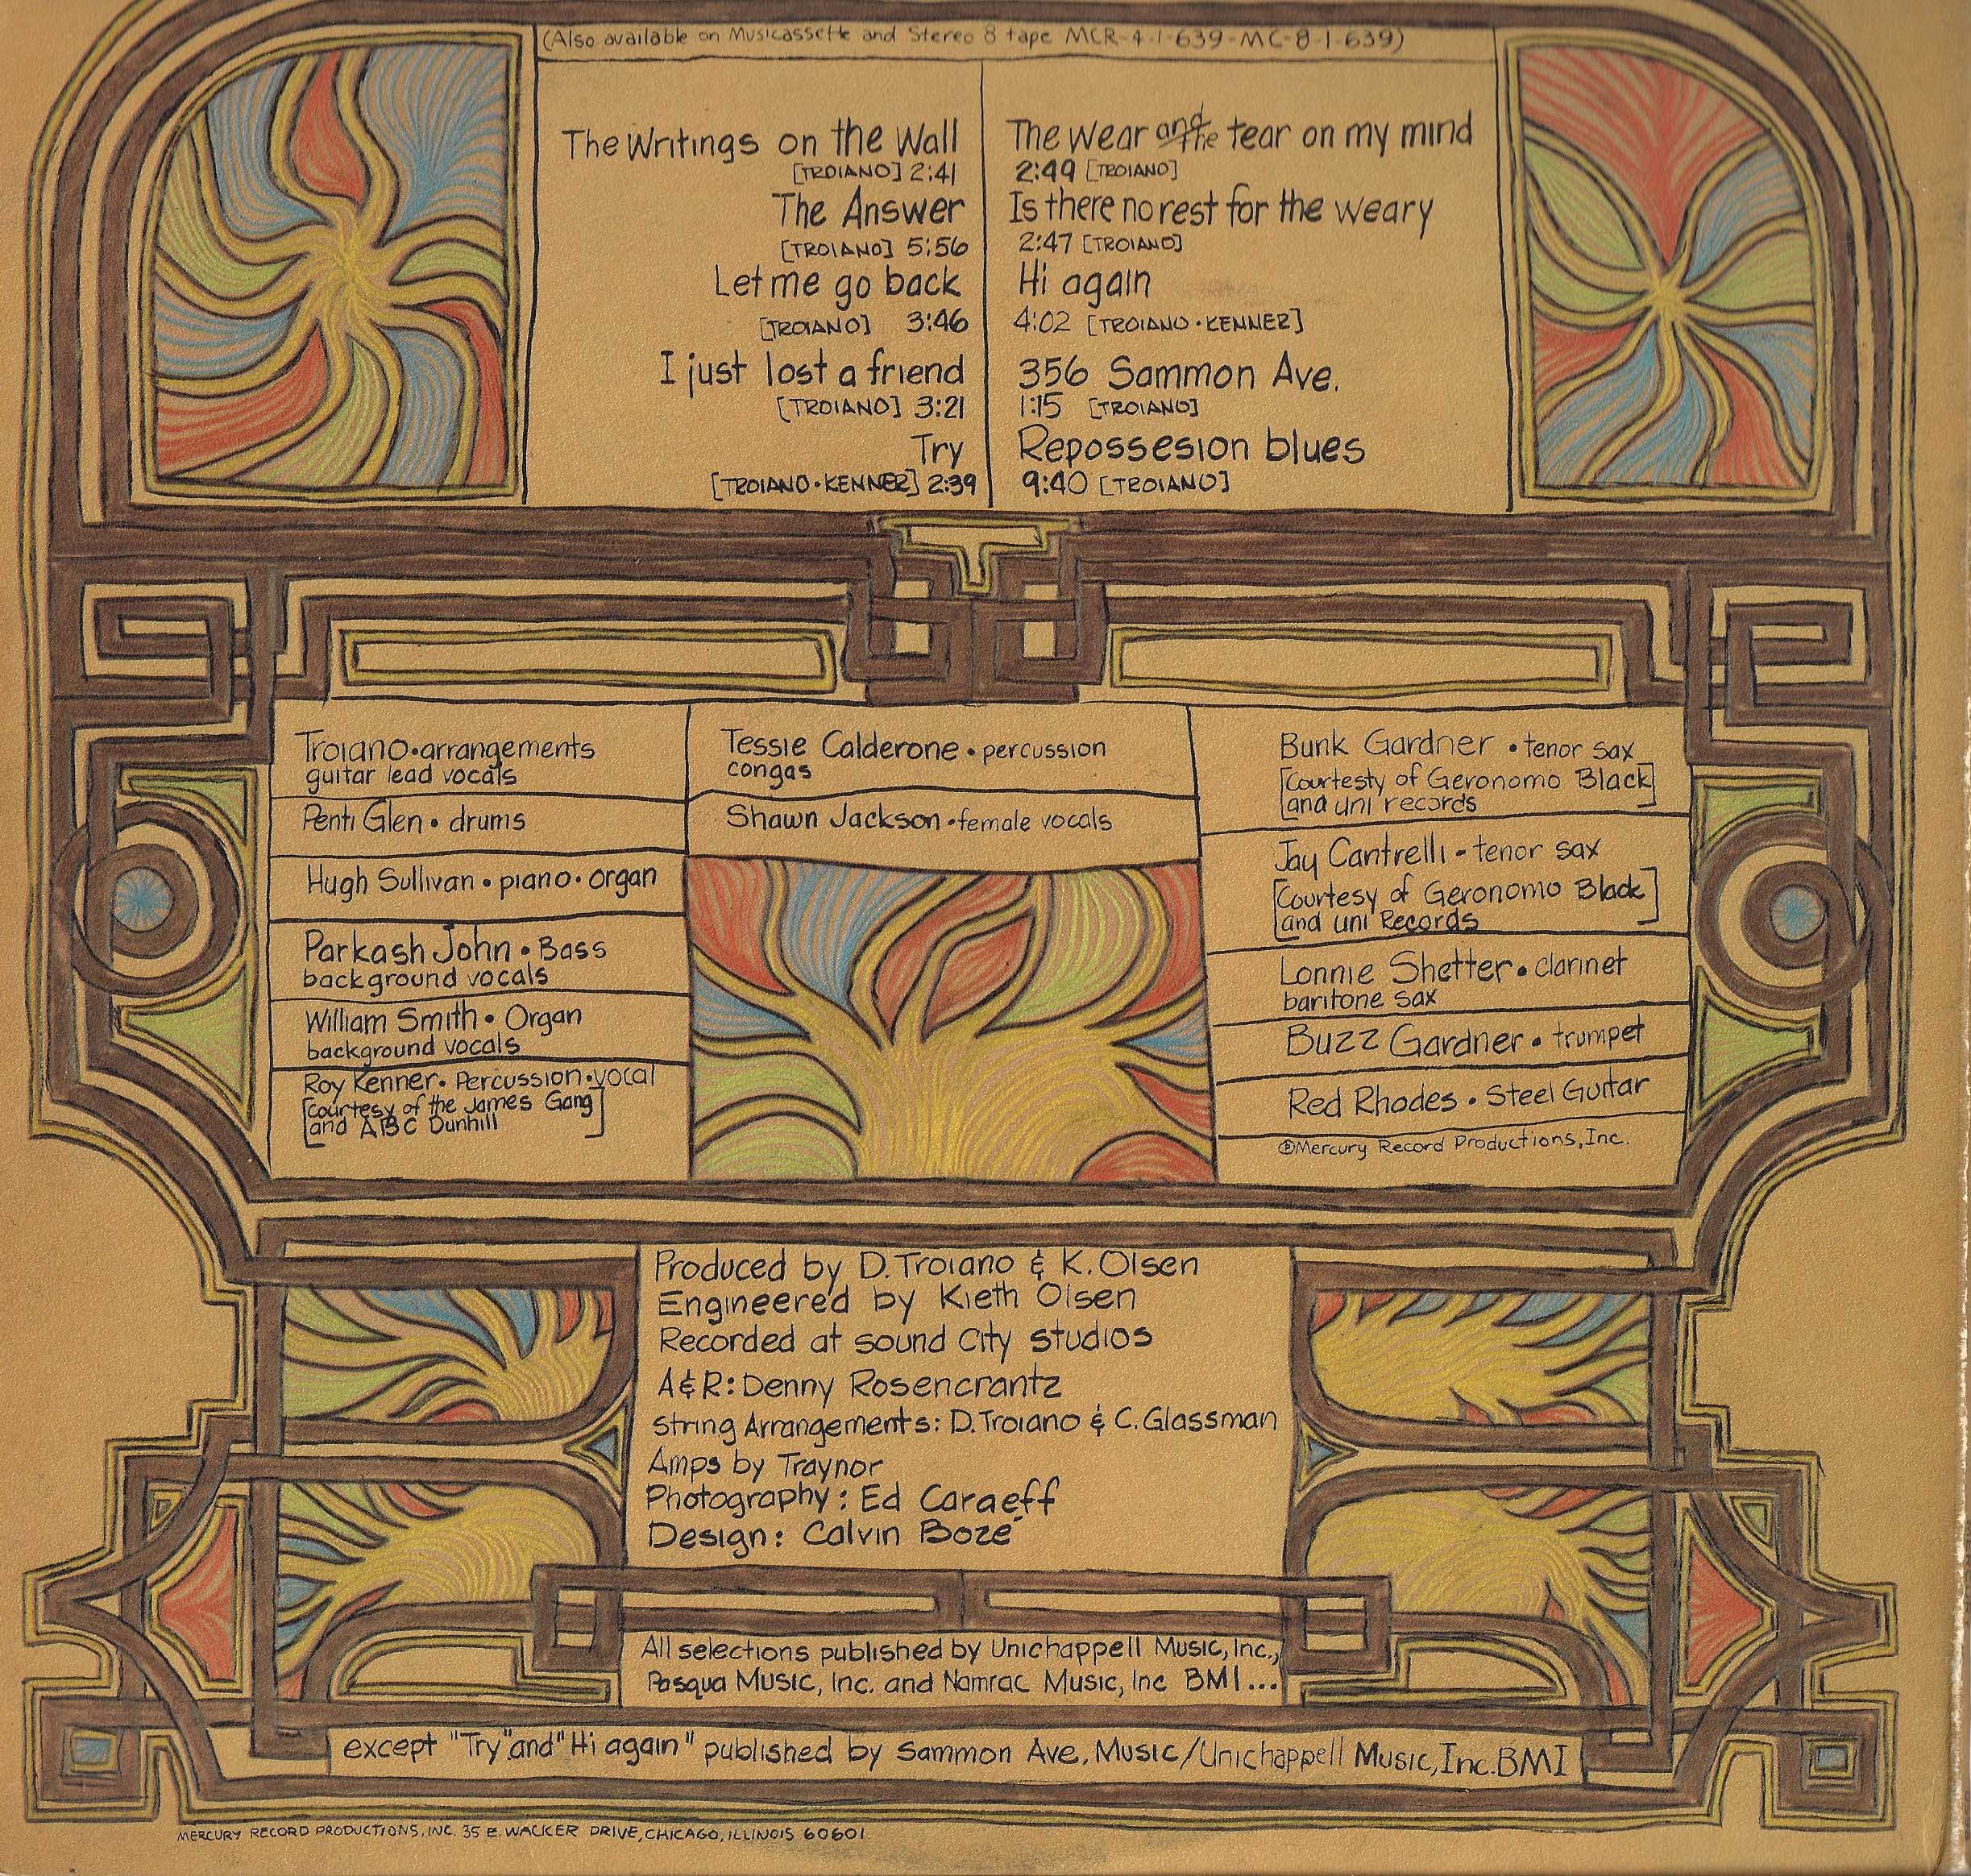 (Also available on Musicassette and Stereo 8 tape MCR-4-1-639-MC-8-1-639)
The Writings on the Wall
[TROIANO] 2:41
The Answer
[TROIANO] 5:56
Let me go back
[TROIANO] 3:46
I just lost a friend
[TROIANO] 3:21
Try
[TROIANO·KENNER] 2:39
The wear and the tear on my mind
2:49 [TROIANO]
Is there no rest for the weary
2:47 [TROIANO]
Hi again
4:02 [TROIANO·KENNER]
356 Sammon Ave.
1:15 [TROIANO]
Repossesion blues
9:40 [TROIANO]
Troiano•arrangements
guitar lead vocals
Penti Glen• drums
Hugh Sullivan•piano•organ
Parkash John•Bass
background vocals
William Smith•Organ
background vocals
Roy Kenner•Percussion•vocal
[courtesy of the James Gang
and ABC Dunhill]
Tessie Calderone•percussion
congas
Shawn Jackson•female vocals
Bunk Gardner •tenor sax
[Courtesty of Geronomo Black
and uni records]
Jay Cantrelli-tenor sax
[Courtesy of Geronomo Black
and uni Records]
Lonnie Shetter•clarinet
baritone sax
Buzz Gardner•trumpet
Red Rhodes•Steel Guitar
℗Mercury Record Productions,Inc.
Produced by D.Troiano & K.Olsen
Engineered by Kieth Olsen
Recorded at sound City studios
A&R:Denny Rosencrantz
string Arrangements: D.Troiano & C.Glassman
Amps by Traynor
Photography: Ed Caraeff
Design: Calvin Bozé
All selections published by Unichappell Music,Inc.,
Pasqua Music, Inc. and Namrac Music, Inc BMI...
except "Try"and"Hi again" published by Sammon Ave. Music/Unichappell Music,Inc.BMI
MERCURY RECORD PRODUCTIONS,INC. 35 E.WACKER DRIVE,CHICAGO,ILLINOIS 60601